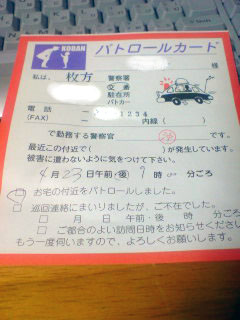 KOBAN
パトロールカード
様
私は、枚方 警察署
交番
駐在所
パトカー
電話 ー 1234
(FAX) 内線( )
で勤務する警察官 です。
最近この付近で( )が発生しています。
被害に遭わないように気をつけて下さい。
4月23日午前・後9時00分ごろ
□ お宅の付近をパトロールしました。
□ 巡回連絡にまいりましたが、ご不在でした。
□ 月 日 午前・後 時 分ごろ
□ ご都合のよい訪問日時をお知らせください
もう一度伺いますので、よろしくお願いします。